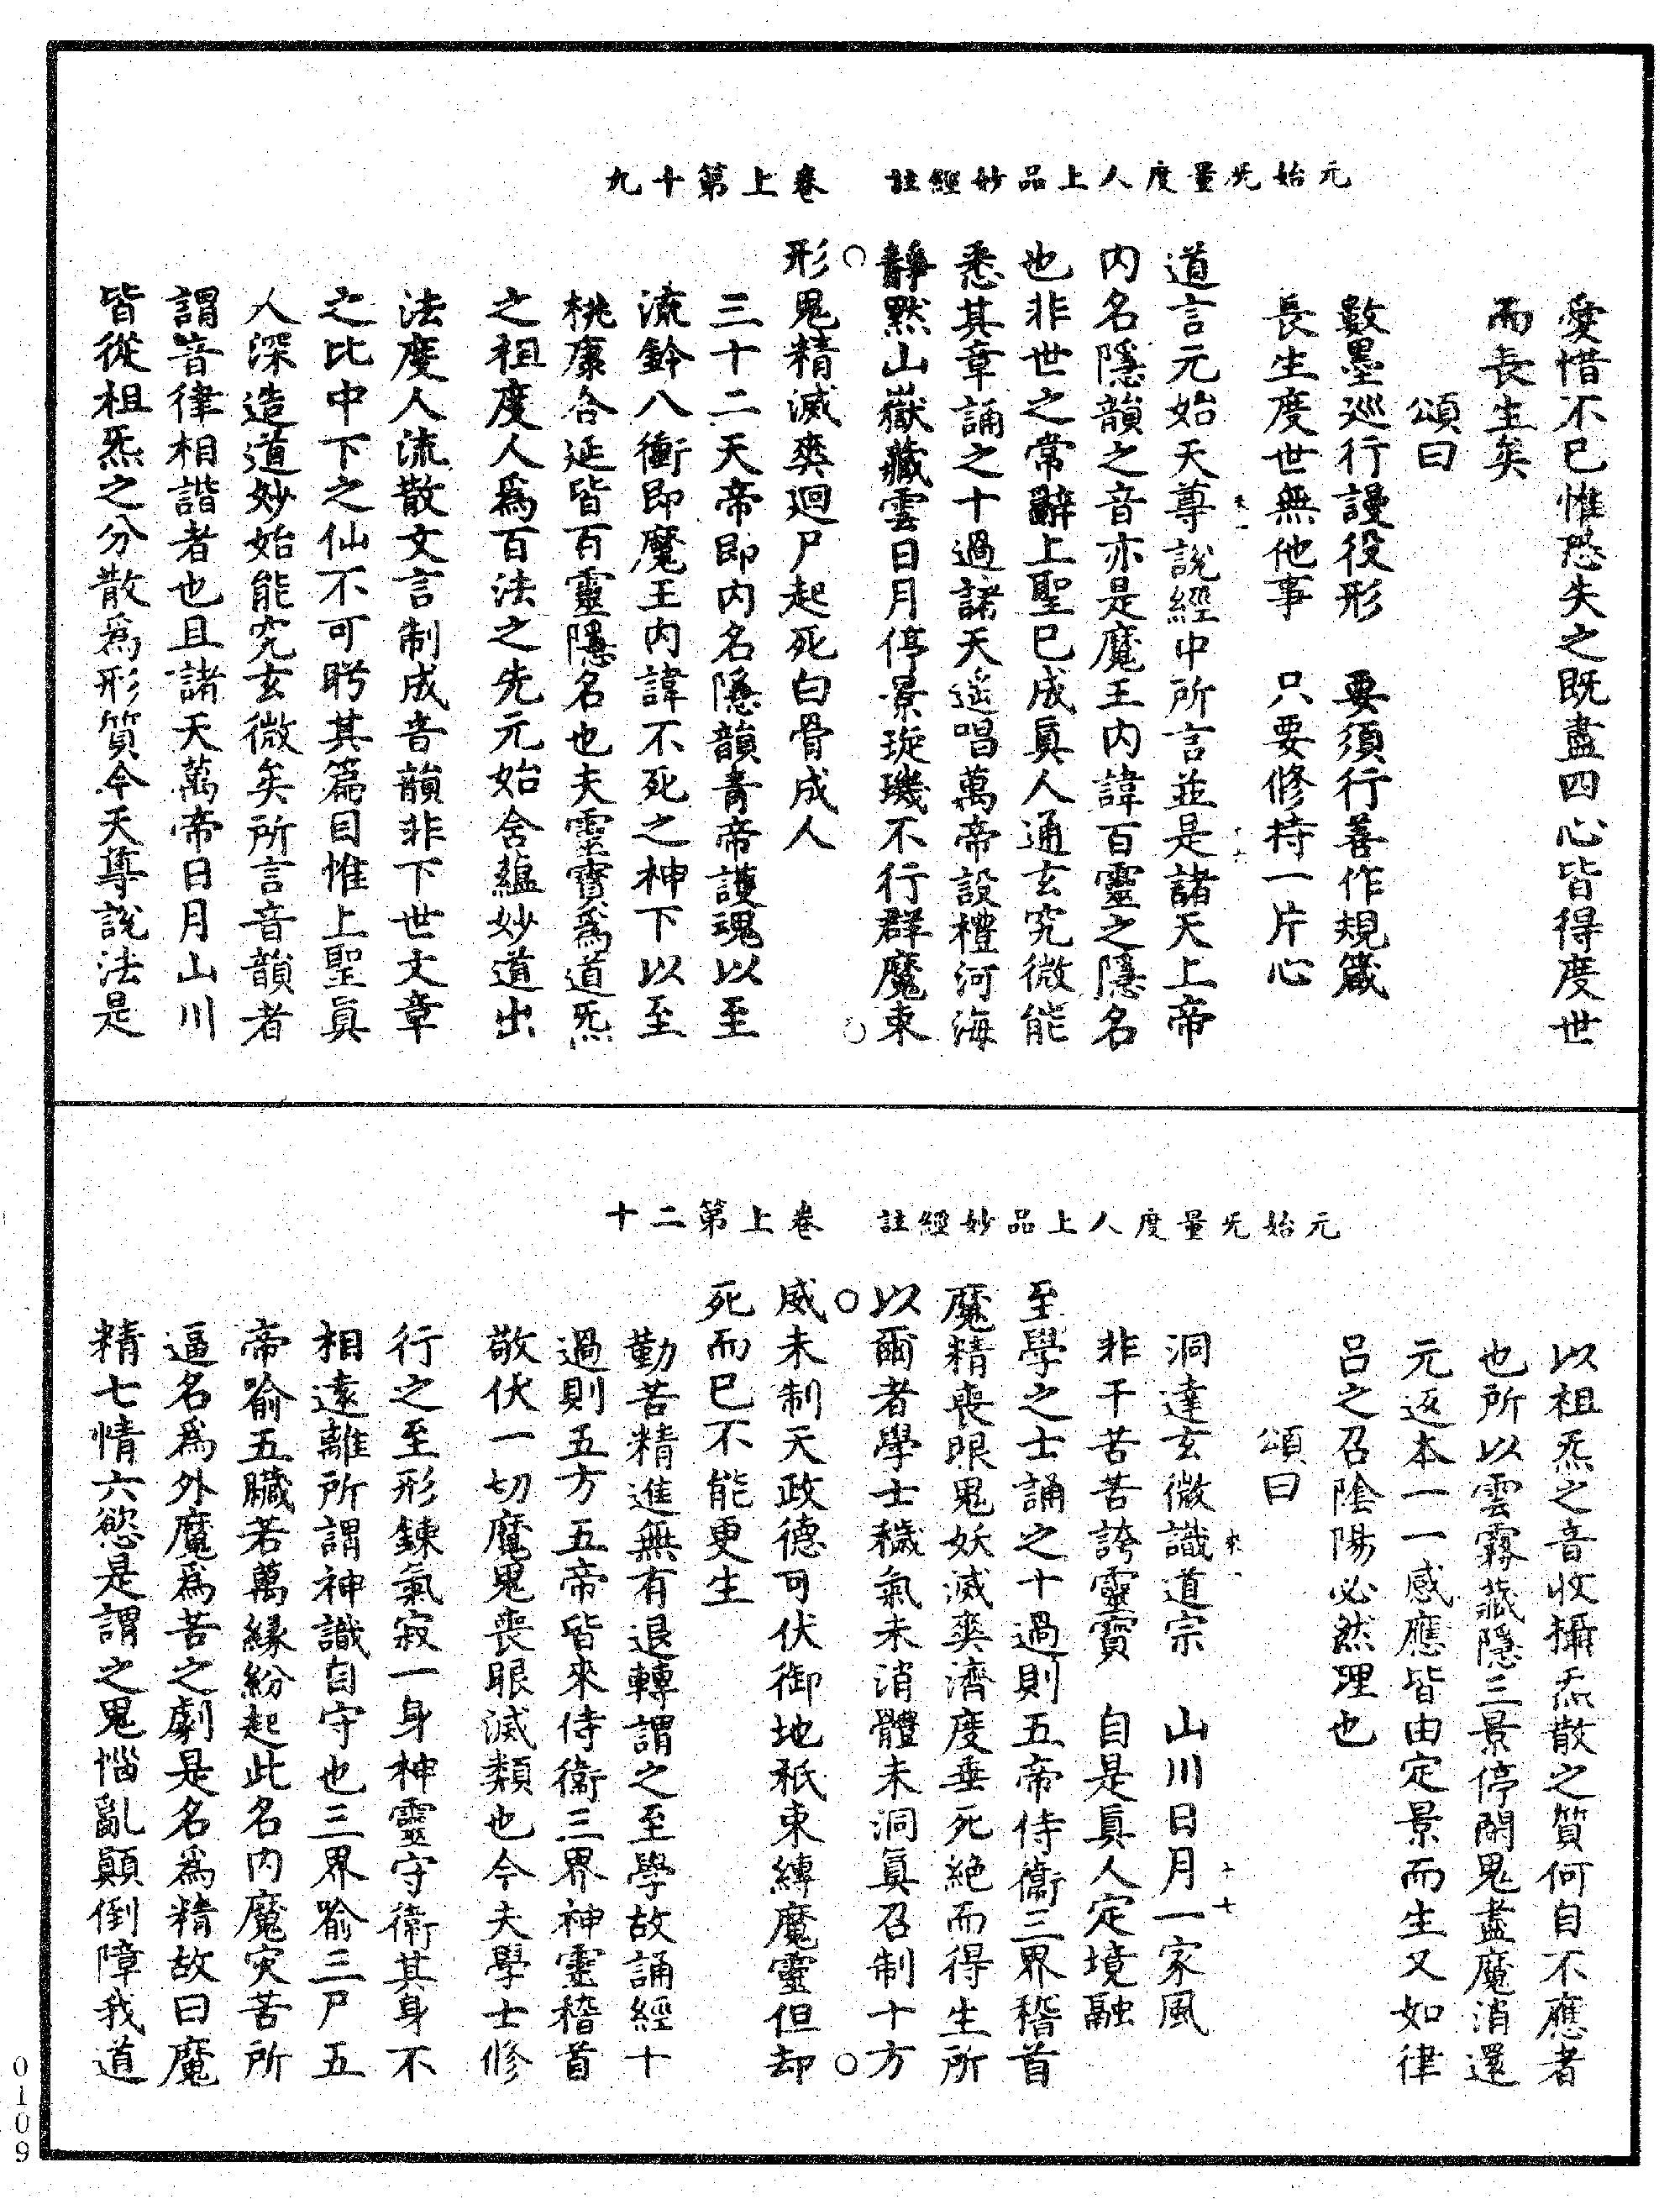 元始无量度人上品妙經註　卷上第十九
愛惜不已惟恐失之既盡四心皆得度世
而長生矣
頌曰
數墨巡行謾役形　要須行善作規箴
長生度世無他事　只要修持一片心
道言元始天尊說經中所言並是諸天上帝
内名隱韻之音亦是魔王内諱百靈之隱名
也非世之常辭上聖已成真人通玄究微能
悉其章誦之十過諸天遥唱萬帝設禮河海
靜默山嶽藏雲日月停景璇璣不行群魔束
形鬼精滅爽迴尸起死白骨成人
三十二天帝即内名隱韻青帝護魂以至
流鈴八衝即魔王内諱不死之神下以至
桃康合延皆百靈隱名也夫靈寶為道炁
之祖度人為百法之先元始含蘊妙道出
法度人流散文言制成音韻非下世文章
之比中下之仙不可眄其篇目惟上聖真
人深造道妙始能究玄微矣所言音韻者
謂音律相諧者也且諸天萬帝日月山川
皆從祖炁之分散為形質今天尊說法是
元始无量度人上品妙經註　卷上第二十
以祖炁之音收攝炁散之質何自不應者
也所以雲霧藏隱三景停關鬼盡魔消還
元返本一一感應皆由定景而生又如律
呂之召陰陽必然理也
頌曰
洞達玄微識道宗　山川日月一家風
非干苦苦誇靈寶　自是真人定境融
至學之士誦之十過則五帝侍衞三界稽首
魔精喪眼鬼妖滅爽濟度垂死絶而得生所
以爾者學士穢氣未消體未洞真召制十方
威未制天政德可伏御地祇束縛魔靈但却
死而已不能更生
勤苦精進無有退轉謂之至學故誦經十
過則五方五帝皆來侍衞三界神靈稽首
敬伏一切魔鬼喪眼滅類也今夫學士修
行之至形鍊氣寂一身神靈守衛其身不
相遠離所謂神識自守也三界喻三尸五
帝喻五臟若萬緣紛起此名内魔灾苦所
逼名為外魔為苦之劇是名為精故曰魔
精七情六慾是謂之鬼惱亂顛倒障我道
0109